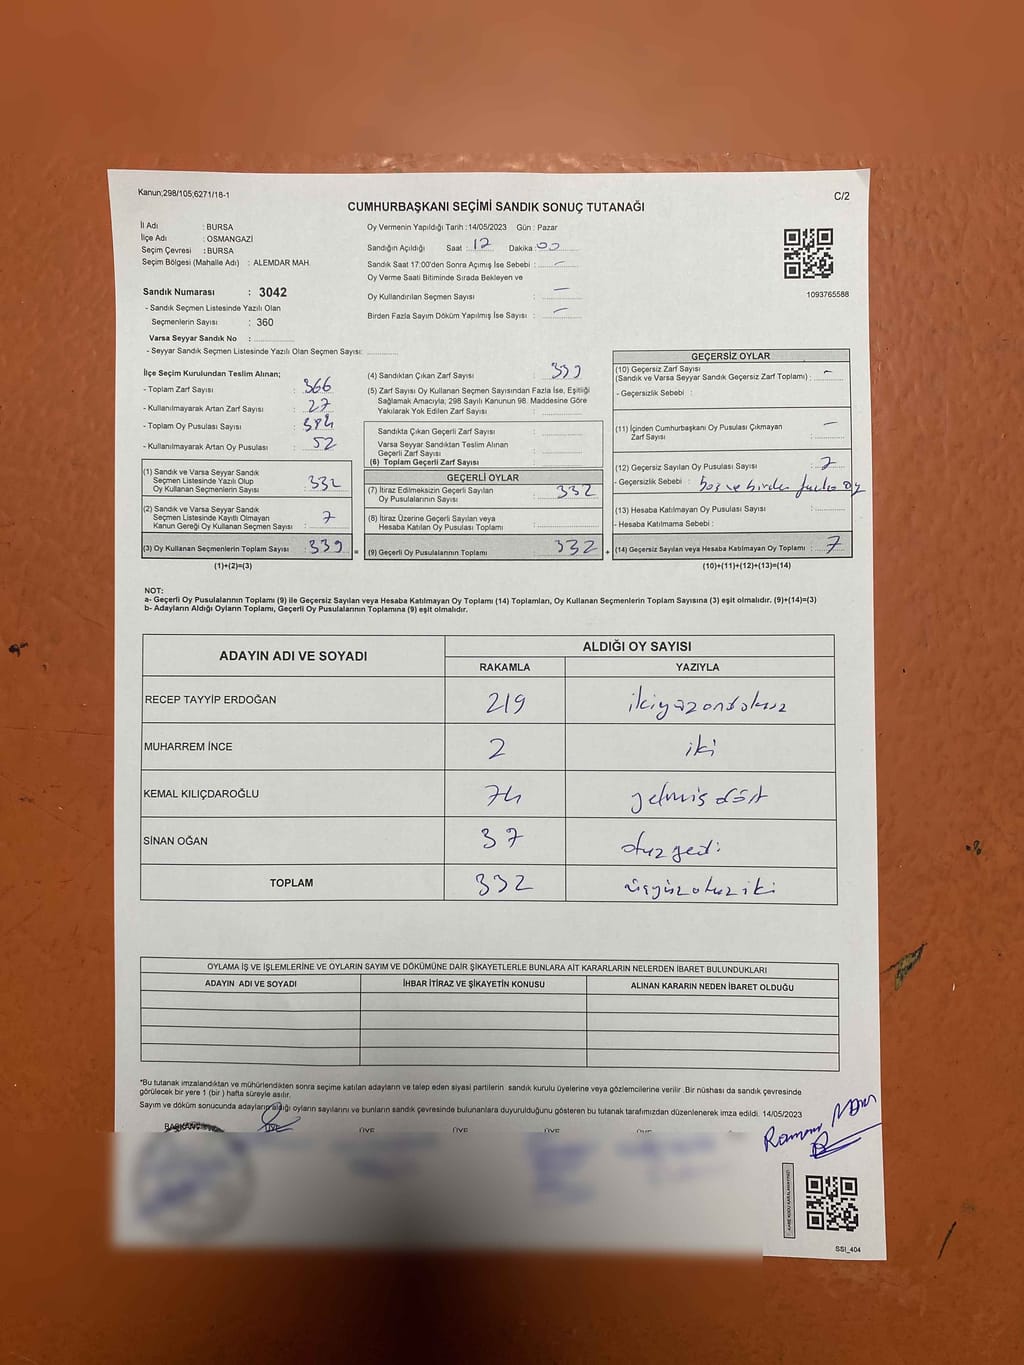 Kanun;298/105;6271/18-1
C/2
CUMHURBAŞKANI SEÇİMİ SANDIK SONUÇ TUTANAĞI
İl Adı : BURSA
İlçe Adı : OSMANGAZİ
Seçim Çevresi : BURSA
Seçim Bölgesi (Mahalle Adı) : ALEMDAR MAH.
Oy Vermenin Yapıldığı Tarih : 14/05/2023 Gün : Pazar
Sandığın Açıldığı Saat : 17 Dakika : 00
Sandık Saat 17:00'den Sonra Açımış İse Sebebi : –
Oy Verme Saati Bitiminde Sırada Bekleyen ve
Oy Kullandırılan Seçmen Sayısı : –
Birden Fazla Sayım Döküm Yapılmış İse Sayısı : –
1093765588
Sandık Numarası : 3042
- Sandık Seçmen Listesinde Yazılı Olan
Seçmenlerin Sayısı : 360
Varsa Seyyar Sandık No :
- Seyyar Sandık Seçmen Listesinde Yazılı Olan Seçmen Sayısı:
İlçe Seçim Kurulundan Teslim Alınan;
- Toplam Zarf Sayısı : 366
- Kullanılmayarak Artan Zarf Sayısı : 27
- Toplam Oy Pusulası Sayısı : 384
- Kullanılmayarak Artan Oy Pusulası : 52
(1) Sandık ve Varsa Seyyar Sandık
Seçmen Listesinde Yazılı Olup
Oy Kullanan Seçmenlerin Sayısı : 332
(2) Sandık ve Varsa Seyyar Sandık
Seçmen Listesinde Kayıtlı Olmayan
Kanun Gereği Oy Kullanan Seçmen Sayısı : 7
(3) Oy Kullanan Seçmenlerin Toplam Sayısı : 339 =
(1)+(2)=(3)
(4) Sandıktan Çıkan Zarf Sayısı : 339
(5) Zarf Sayısı Oy Kullanan Seçmen Sayısından Fazla İse, Eşitliği
Sağlamak Amacıyla; 298 Sayılı Kanunun 98. Maddesine Göre
Yakılarak Yok Edilen Zarf Sayısı :
Sandıkta Çıkan Geçerli Zarf Sayısı :
Varsa Seyyar Sandıktan Teslim Alınan
Geçerli Zarf Sayısı :
(6) Toplam Geçerli Zarf Sayısı :
GEÇERLİ OYLAR
(7) İtiraz Edilmeksizin Geçerli Sayılan
Oy Pusulalarının Sayısı : 332
(8) İtiraz Üzerine Geçerli Sayılan veya
Hesaba Katılan Oy Pusulası Toplamı :
(9) Geçerli Oy Pusulalarının Toplamı : 332 +
GEÇERSİZ OYLAR
(10) Geçersiz Zarf Sayısı
(Sandık ve Varsa Seyyar Sandık Geçersiz Zarf Toplamı) : –
- Geçersizlik Sebebi :
(11) İçinden Cumhurbaşkanı Oy Pusulası Çıkmayan
Zarf Sayısı : –
(12) Geçersiz Sayılan Oy Pusulası Sayısı : 7
- Geçersizlik Sebebi : boş ve birden fazla oy
(13) Hesaba Katılmayan Oy Pusulası Sayısı :
- Hesaba Katılmama Sebebi :
(14) Geçersiz Sayılan veya Hesaba Katılmayan Oy Toplamı : 7
(10)+(11)+(12)+(13)=(14)
NOT:
a- Geçerli Oy Pusulalarının Toplamı (9) ile Geçersiz Sayılan veya Hesaba Katılmayan Oy Toplamı (14) Toplamları, Oy Kullanan Seçmenlerin Toplam Sayısına (3) eşit olmalıdır. (9)+(14)=(3)
b- Adayların Aldığı Oyların Toplamı, Geçerli Oy Pusulalarının Toplamına (9) eşit olmalıdır.
ADAYIN ADI VE SOYADI
ALDIĞI OY SAYISI
RAKAMLA YAZIYLA
RECEP TAYYİP ERDOĞAN 219 ikiyüzondokuz
MUHARREM İNCE 2 iki
KEMAL KILIÇDAROĞLU 74 yetmiş dört
SİNAN OĞAN 37 otuz yedi
TOPLAM 332 üçyüzotuz iki
OYLAMA İŞ VE İŞLEMLERİNE VE OYLARIN SAYIM VE DÖKÜMÜNE DAİR ŞİKAYETLERLE BUNLARA AİT KARARLARIN NELERDEN İBARET BULUNDUKLARI
ADAYIN ADI VE SOYADI İHBAR İTİRAZ VE ŞİKAYETİN KONUSU ALINAN KARARIN NEDEN İBARET OLDUĞU
*Bu tutanak imzalandıktan ve mühürlendikten sonra seçime katılan adayların ve talep eden siyasi partilerin sandık kurulu üyelerine veya gözlemcilerine verilir .Bir nüshası da sandık çevresinde
görülecek bir yere 1 (bir ) hafta süreyle asılır.
Sayım ve döküm sonucunda adayların aldığı oyların sayılarını ve bunların sandık çevresinde bulunanlara duyurulduğunu gösteren bu tutanak tarafımızdan düzenlenerek imza edildi. 14/05/2023
BAŞKAN ÜYE ÜYE ÜYE ÜYE ÜYE
SSI_404